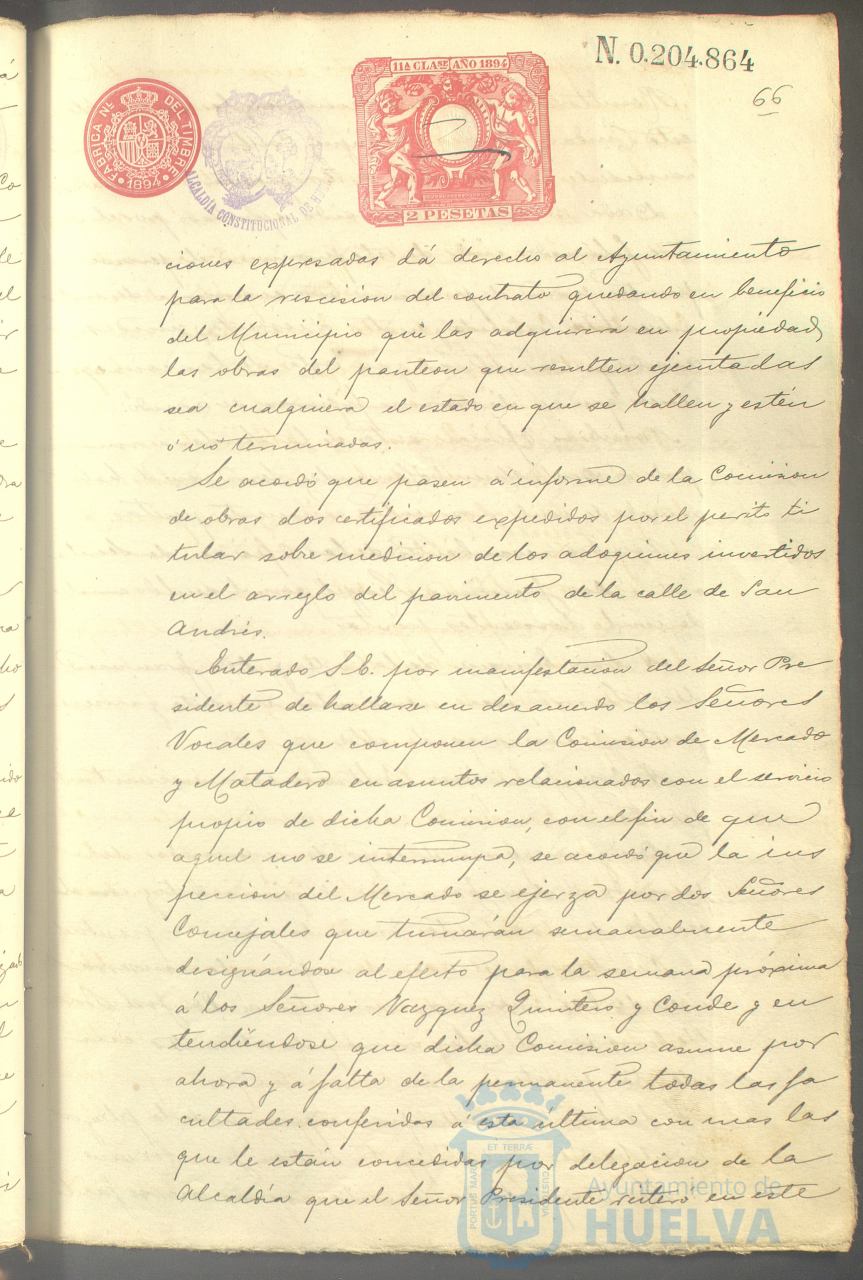 N. 0.204.864
66
11ª CLASE AÑO 1894
2 PESETAS
FABRICA NL. DEL TIMBRE
1894
ALCALDIA CONSTITUCIONAL DE H
ciones expresadas dá derecho al Ayuntamiento
para la rescision del contrato quedando en beneficio
del Municipio que las adquirirá en propiedad
las obras del panteon que resulten ejecutadas
sea cualquiera el estado en que se hallen y estén
ó nó terminadas.
Se acordó que pasen á informe de la Comision
de obras dos certificados expedidos por el perito ti
tular sobre medicion de los adoquines invertidos
en el arreglo del pavimento de la calle de San
Andrés.
Enterado S.E. por manifestacion del Señor Pre
sidente de hallarse en desacuerdo los Señores
Vocales que componen la Comision de Mercado
y Matadero en asuntos relacionados con el servicio
propio de dicha Comision, con el fin de que
aquel no se interrumpa, se acordó que la ins
peccion del Mercado se ejerza por dos Señores
Concejales que turnarán semanalmente
designándose al efecto para la semana próxima
á los Señores Vazquez Quintero y Conde y en
tendiéndose que dicha Comision asume por
ahora y á falta de la permanente todas las fa
cultades conferidas á esta última con mas las
que le están concedidas por delegacion de la
Alcaldía que el Señor Presidente reiteró en este
ET TERRÆ
PORTUS MARIS
Ayuntamiento de
HUELVA